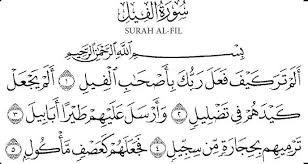 سُورَةُ الْفِيلِ
SURAH AL-FIL
بِسْمِ اللَّهِ الرَّحْمَٰنِ الرَّحِيمِ
أَلَمْ تَرَ كَيْفَ فَعَلَ رَبُّكَ بِأَصْحَابِ الْفِيلِ ١ أَلَمْ يَجْعَلْ
كَيْدَهُمْ فِي تَضْلِيلٍ ٢ وَأَرْسَلَ عَلَيْهِمْ طَيْرًا أَبَابِيلَ ٣
تَرْمِيهِم بِحِجَارَةٍ مِّن سِجِّيلٍ ٤ فَجَعَلَهُمْ كَعَصْفٍ مَّأْكُولٍ ٥